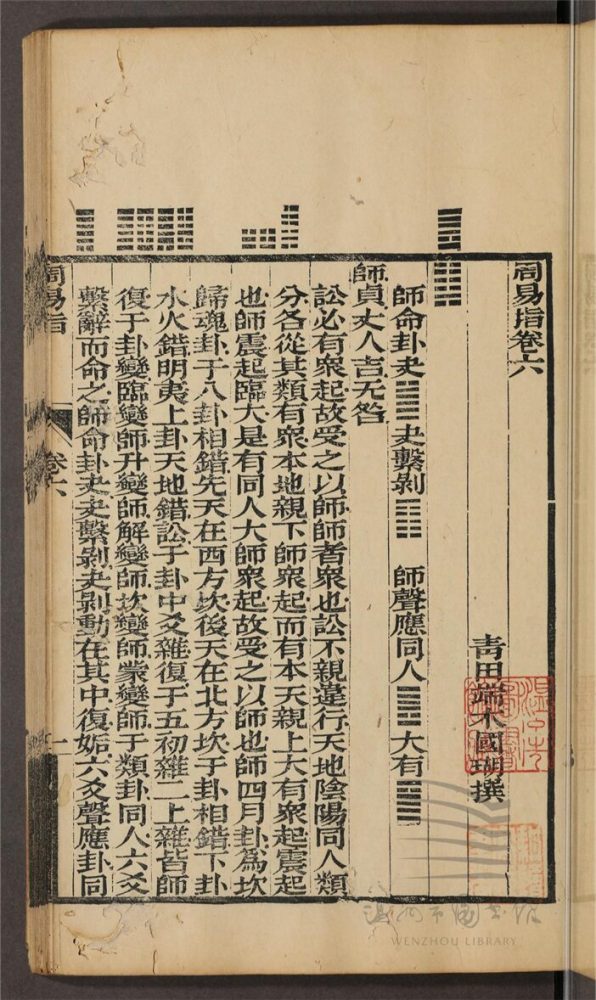 周易指卷六
青田端木國瑚撰
師命卦夬䷪夬繫剝䷖ 師聲應同人䷌大有䷍
師貞丈人吉无咎
訟必有眾起故受之以師師者眾也訟不親違行天地陰陽同人類
分各從其類有眾本地親下師眾起而有本天親上大有眾起震起
也師震起臨大是有同人大師眾起故受之以師也師四月卦為坎
歸魂卦于八卦相錯先天在西方坎後天在北方坎于卦相錯下卦
水火錯明夷上卦天地錯訟于卦中爻雜復于五初雜二上雜皆師
復于卦變臨變師升變師解變師坎變師蒙變師于類卦同人六爻
繫辭而命之師命卦夬夬繫剝夬剝動在其中復姤六爻聲應卦同
周易指
卷六
一
WENZHOU LIBRARY